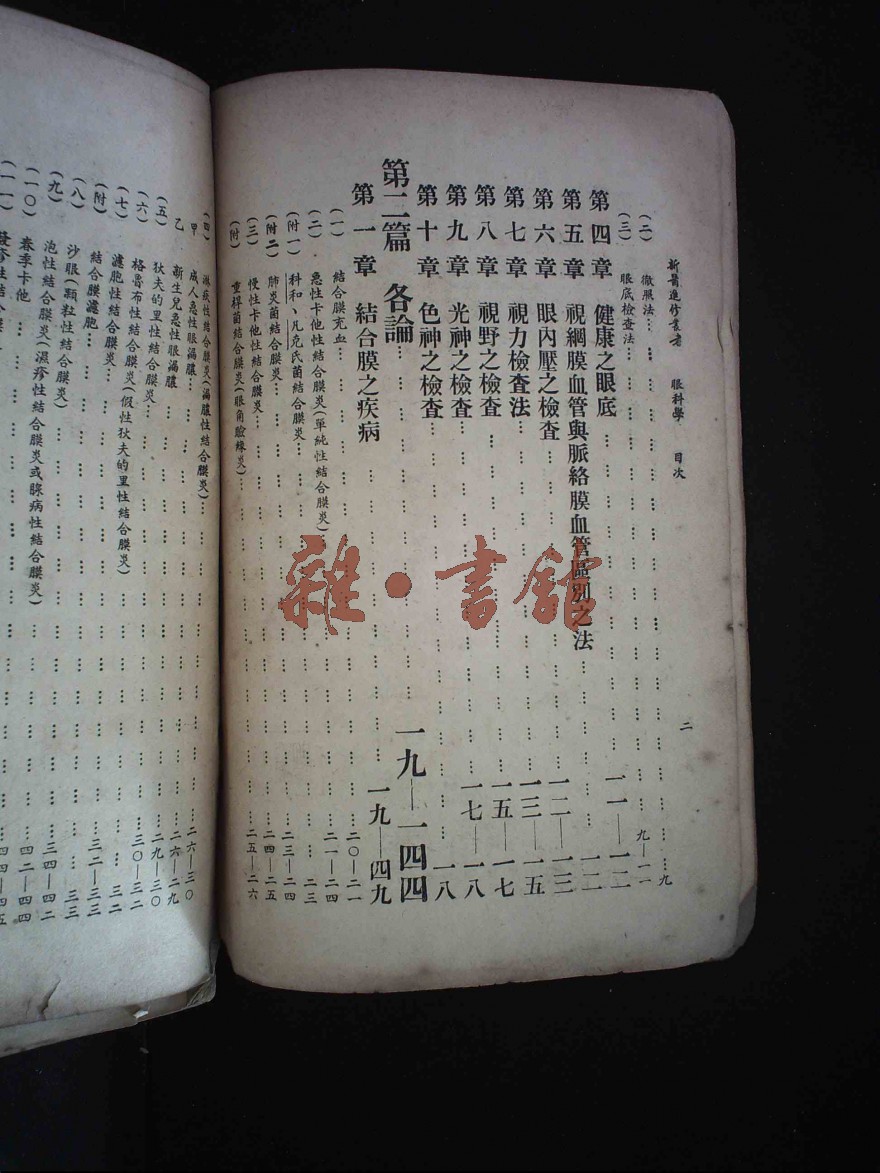 新醫進修叢書 眼科學 目次 二
(二) 徹照法……九
(三) 眼底檢查法……九—一一
第四章 健康之眼底……一一—一二
第五章 視網膜血管與脈絡膜血管區別之法……一二
第六章 眼內壓之檢查……一二—一三
第七章 視力檢查法……一三—一五
第八章 視野之檢查……一五—一七
第九章 光神之檢查……一七—一八
第十章 色神之檢查……一八
第二篇 各論……一九—一四四
第一章 結合膜之疾病……一九—四九
(一) 結合膜充血……二〇—二一
(二) 急性卡他性結合膜炎(單純性結合膜炎)……二一—二四
(附一) 科和、凡克氏菌結合膜炎……二三
(附二) 肺炎菌結合膜炎……二三—二四
(三) 慢性卡他性結合膜炎……二四—二五
(附) 重桿菌結合膜炎(眼角瞼緣炎)……二五—二六
(四) 淋菽性結合膜炎(漏膿性結合膜炎)……二六—三〇
甲 成人急性眼漏膿……二六—二九
乙 新生兒急性眼漏膿……二九—三〇
(五) 狄夫的里性結合膜炎……三〇—三二
(六) 格魯布性結合膜炎(假性狄夫的里性結合膜炎)……三二
(七) 濾胞性結合膜炎……三二—三三
(附) 結合膜濾胞……三三
(八) 沙眼(顆粒性結合膜炎)……三四—四二
(九) 泡性結合膜炎(濕疹性結合膜炎或腺病性結合膜炎)……四二—四四
(一〇) 春季卡他……四四—四五
(一一) 發疹性結合膜炎
雜·書館